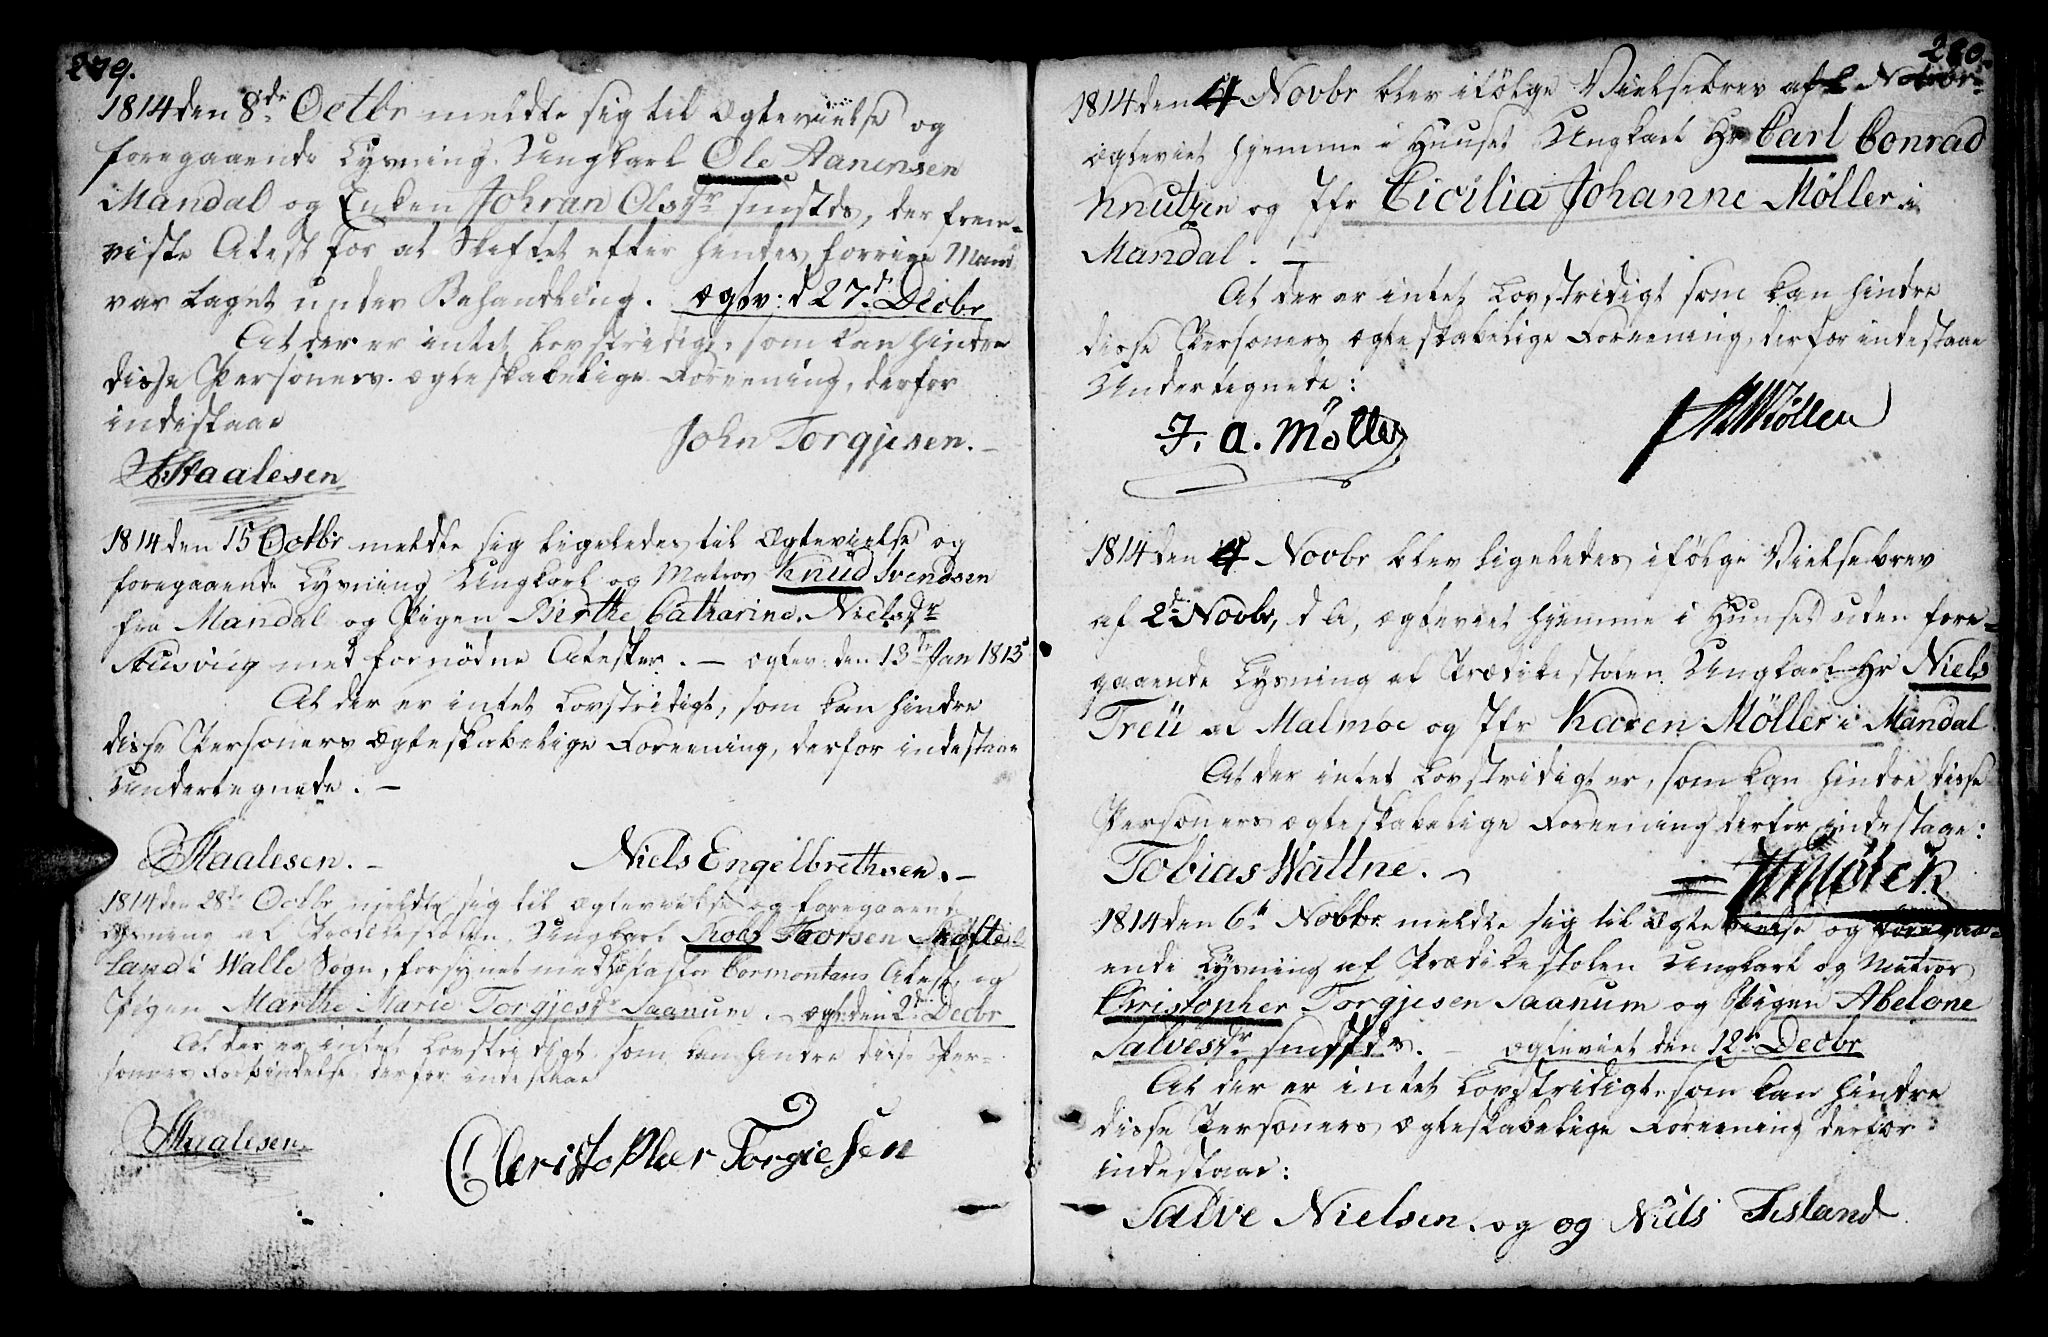 279.
1814 den 8de Octbr meldte sig til Ægtevielse og
foregaaende Lysning Ungkarl Ole Aanensen
Mandal og Enken Johran Olsdr smstds, der frem-
viste Atest for at Skiftet efter hendes forrige Mand
var taget under Behandling. ægtv: d 27d Decbr
At der er intet Lovstridigt, som kan hindre
disse Personers ægteskabelige Foreening, derfor
indestaae
John Torgjesen.
Staalesen
1814 den 15 Octbr meldte sig ligeledes til Ægtevielse og
foregaaende Lysning Ungkarl og Matros Knud Svendsen
fra Mandal og Pigen Birthe Catharine Nielsdr
med fornødne Atester. – ægtev: den 13de Jan 1815
At der er intet Lovstridigt, som kan hindre
disse Personers Ægteskabelige Foreening, derfor indestaae
Undertegnede. –
Staalesen. – Niels Engelbrethsen. –
1814 den 28de Octbr meldte sig til Ægtevielse og foregaaende
Lysning af Prædikestolen Ungkarl Thorsen
land i Walle Sogn, forsynet med Atest, og
Pigen Marthe Marie Torgjesdr Saanum. – ægt: den 2de Decbr
At der er intet Lovstridigt som kan hindre disse Per-
soners Forbindelse derfor indestaae
Staalesen
Christopher Torgiesen
280.
1814 den 4 Novbr blev ifølge Vielsebrev af Novbr
ægteviet hjemme i Huuset Ungkarl Hr Carl Conrad
Knutzen og Jfr Cicilia Johanne Møller i
Mandal. –
At der er intet Lovstridigt som kan hindre
disse Personers ægteskabelige Foreening, derfor indestaae
Undertegnede:
J. A. Møller Møller
1814 den 4 Novbr blev ligeledes ifølge Vielsebrev
af 2d Novbr, d A, ægteviet hjemme i Huuset uden fore-
gaaende Lysning af Prædikestolen Ungkarl Hr Niels
Treü af Malmoe og Jfr Karen Møller i Mandal
At der intet Lovstridigt er, som kan hindre disse
Personers ægteskabelige Foreening derfor indestaae:
Tobias Wallne. –
1814 den 6te Novbr meldte sig til Ægtevielse og foregaa-
ende Lysning af Prædikestolen Ungkarl og Matros
Christopher Torgjesen Saanum og Pigen Abelone
Salvesdr smstds. – ægteviet den 12te Decbr
At der er intet Lovstridigt som kan hindre
disse Personers Ægteskabelige Foreening derfor
indestaae:
Salve Nielsen. og og Niels Tisland